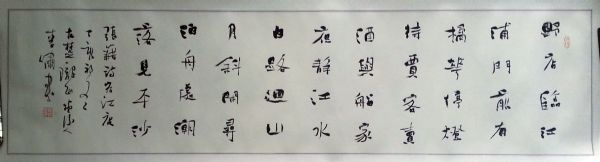 野店臨江
浦門前有
橘華停燈
待賈客賣
酒與船家
夜靜江水
白路迴山
月斜閒尋
泊舟處潮
落見平沙
張籍詩宿江店
丁亥
古楚